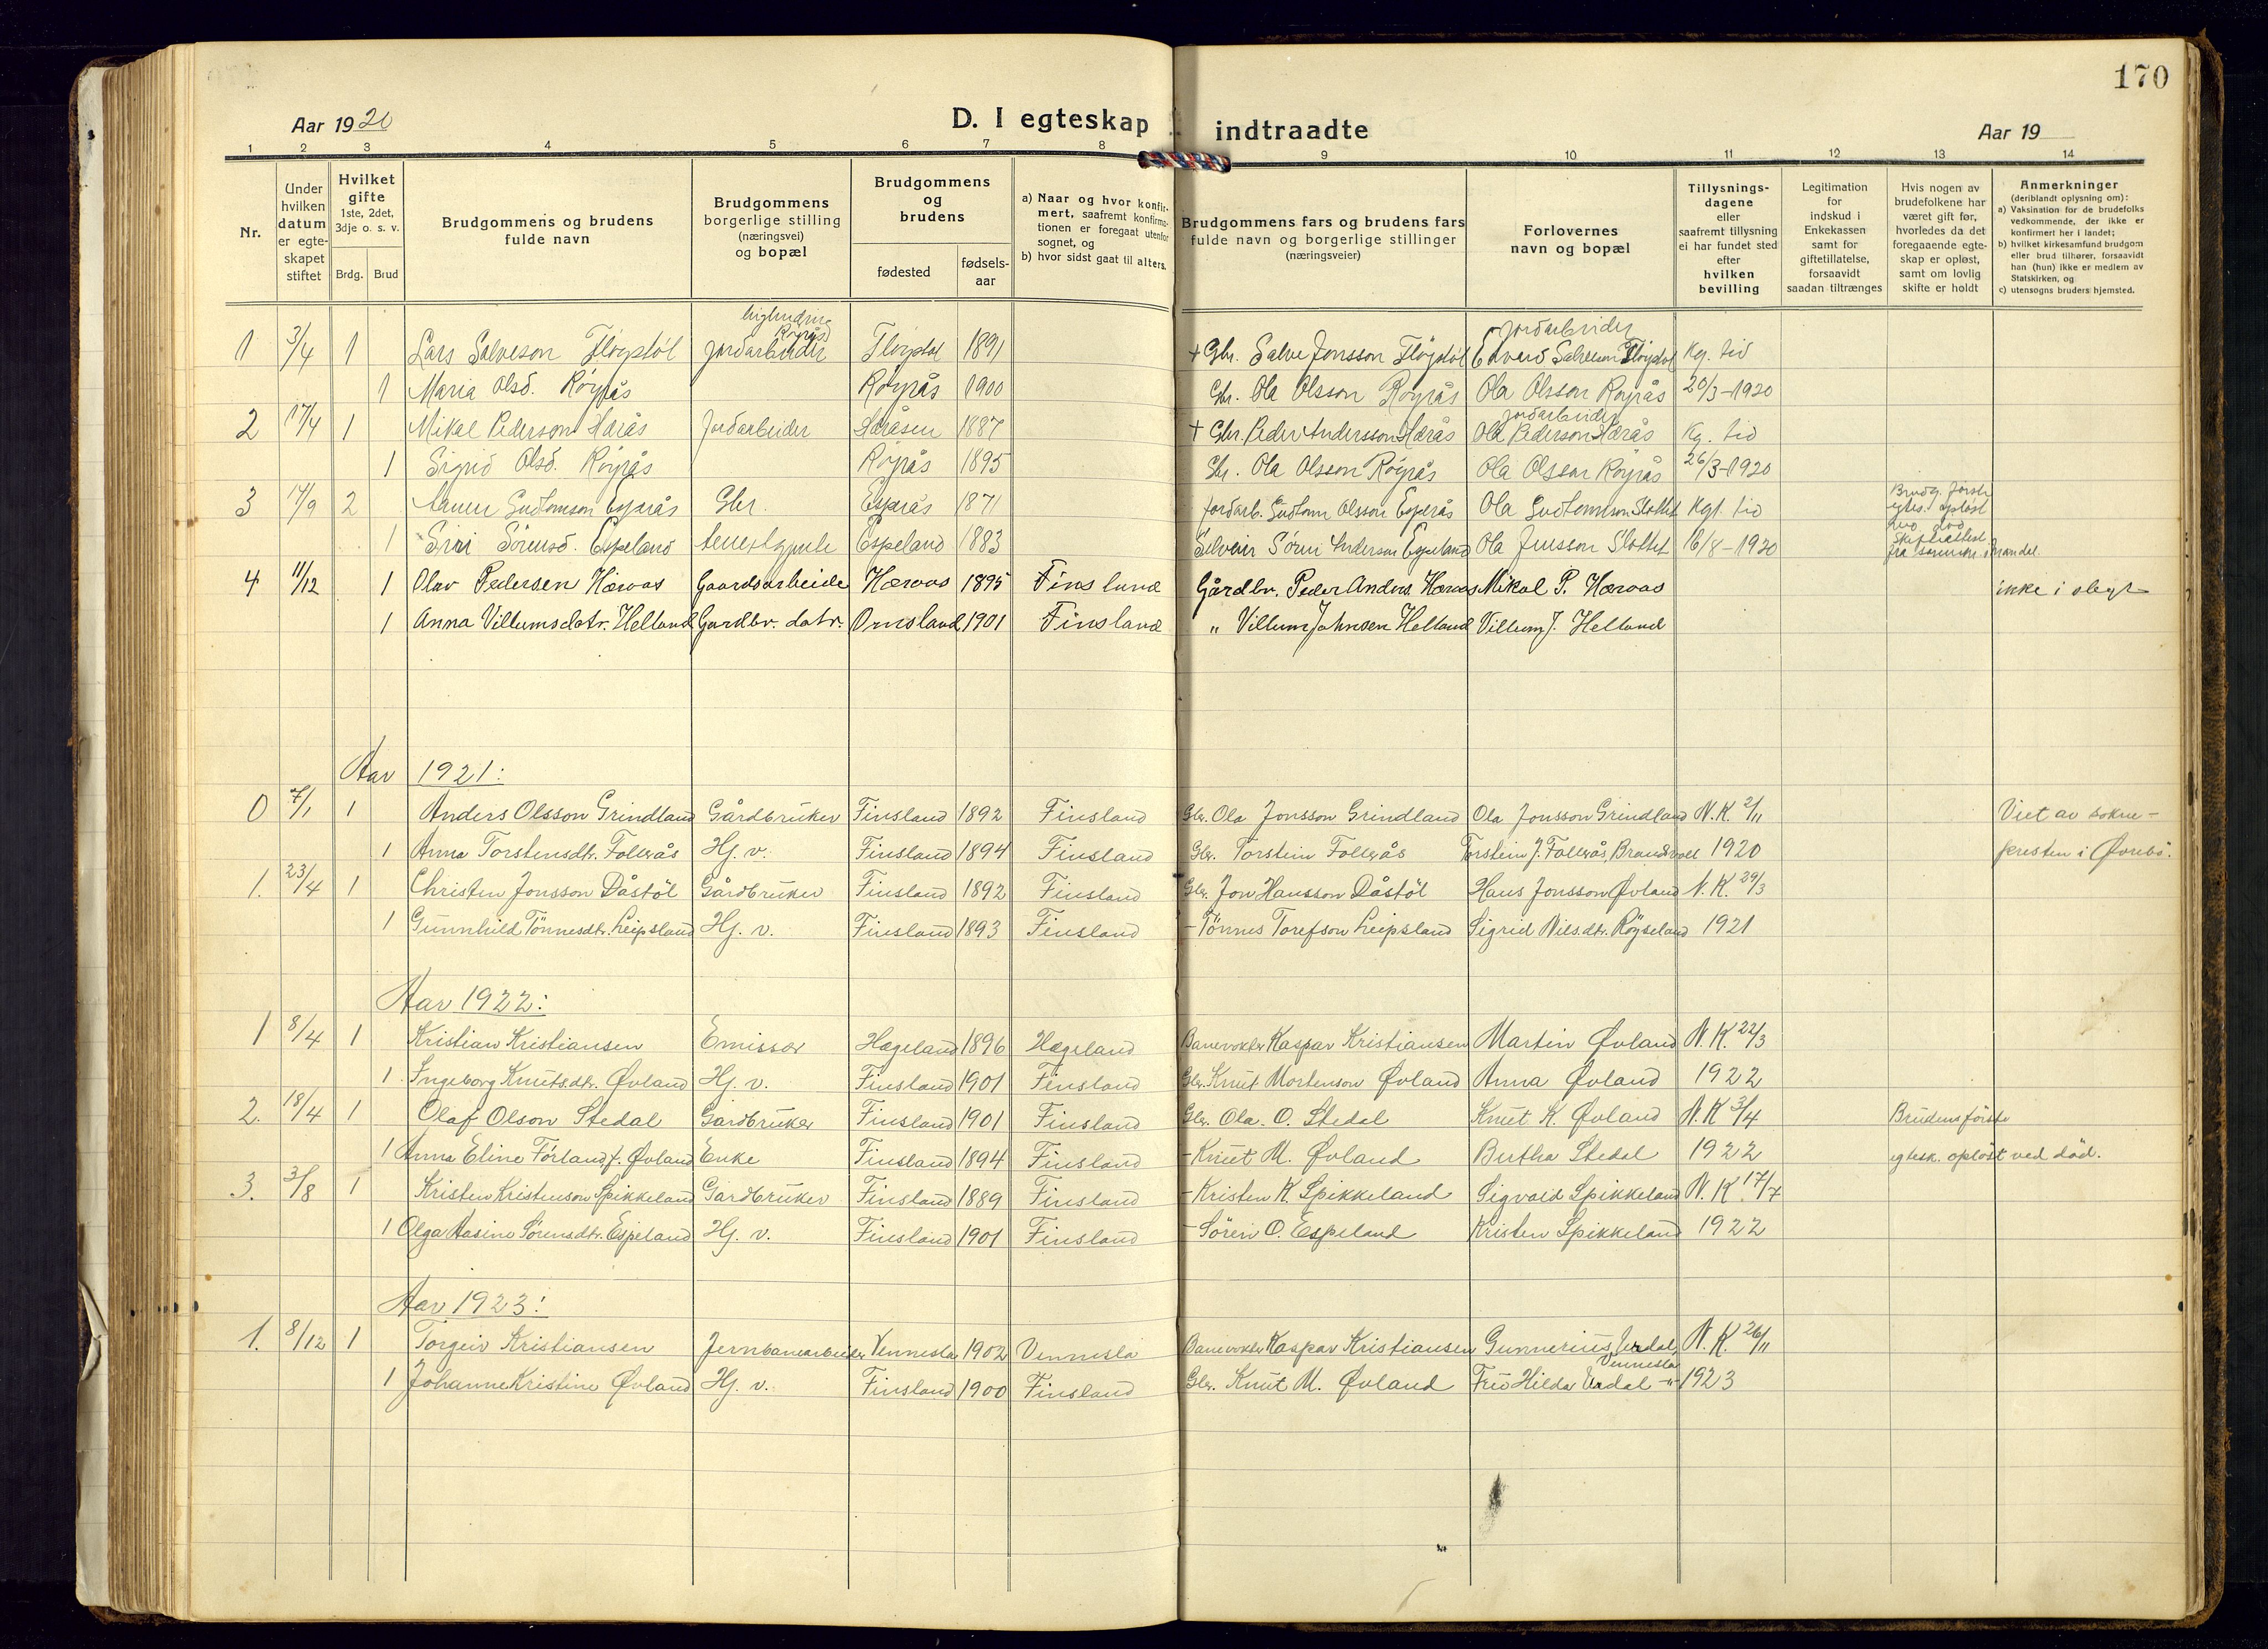 170
Aar 1920 D. I egteskap indtraadte Aar 19
1 2 3 4 5 6 7 8 9 10 11 12 13 14
Nr.
Under hvilken datum er egte-skapet stiftet
Hvilket gifte 1ste, 2det, 3dje o. s. v.
Brdg. Brud
Brudgommens og brudens fulde navn
Brudgommens borgerlige stilling (næringsvei) og bopæl
Brudgommens og brudens
fødested fødsels-aar
a) Naar og hvor konfir-mert, saafremt konfirma-tionen er foregaat utenfor sognet, og
b) hvor sidst gaat til alters.
Brudgommens fars og brudens fars fulde navn og borgerlige stillinger (næringsveier)
Forlovernes navn og bopæl
Tillysnings-dagene eller saafremt tillysning ei har fundet sted efter hvilken bevilling
Legitimation for indskud i Enkekassen samt for giftetillatelse, forsaavidt saadan tiltrænges
Hvis nogen av brudefolkene har været gift før, hvorledes da det foregaaende egte-skap er opløst, samt om lovlig skifte er holdt
Anmerkninger (deriblandt oplysning om):
a) Vaksination for de brudefolks vedkommende, der ikke er konfirmert her i landet;
b) hvilket kirkesamfund brudgom eller brud tilhører, forsaavidt han (hun) ikke er medlem av Statskirken, og
c) utensogns bruders hjemsted.
Røyrås Jordarbeider
1 3/4 1 Lars Salveson Fløystøl Jordarbeider Fløystøl 1891 + Gbr. Salve Jonsson Fløystøl Edvard Salveson Fløystøl Kg. tid
1 Maria Olsd. Røyrås Røyrås 1900 Gbr. Ola Olsson Røyrås Ola Olsson Røyrås 20/3-1920
Jordarbeider
2 17/4 1 Mikal Pederson Hærås Jordarbeider Hæråsen 1887 + Gbr. Peder Andersson Hærås Ola Pederson Hærås Kg. tid
1 Sigrid Olsd. Røyrås Røyrås 1895 Gbr. Ola Olsson Røyrås Ola Olsson Røyrås 26/3-1920
3 14/9 2 Gudtomson Esperås Gbr. Esperås 1871 Jordarb. Gudtom Olsson Esperås Ola Gudtomson Slottet Kgt. tid Brudg. første egtes. opløst ved død
1 Siri Sørensd. Espeland Espeland 1883 Selveier Søren Anderson Espeland Ola Jensson Slottet 16/8-1920 Skifteattest fra
4 11/12 1 Olav Pedersen Hæraas Gaardsarbeide Hæraas 1895 Finsland Gårdbr. Peder Anders. Hæraas Mikal P. Hæraas ikke i slegt
1 Anna Villumsdatr. Helland Gardbr. datr. Ørnsland 1901 Finsland " Villum Johnsen Helland Villum J. Helland
Aar 1921:
0 7/1 1 Anders Olsson Grindland Gårdbruker Finsland 1892 Finsland Gbr. Ola Jonsson Grindland Ola Jonsson Grindland N.K. 2/11 Viet av sokne-
1 Anna Torstensdtr. Follerås Hj. v. Finsland 1894 Finsland Gbr. Torstein Follerås Torstein J. Follerås, Brandsvoll 1920 presten i Øvrebø.
1. 23/4 1 Christen Jonsson Dåstøl Gårdbruker Finsland 1892 Finsland Gbr. Jon Hansson Dåstøl Hans Jonsson Øvland N.K. 29/3
1 Gunnhild Tønnesdtr. Leipsland Hj. v. Finsland 1893 Finsland - Tønnes Torefson Leipsland Sigrid Nils.dtr. Røyseland 1921
Aar 1922:
1 8/4 1 Kristian Kristiansen Emissær Hægeland 1896 Hægeland Banevokter Kaspar Kristiansen Martin Øvland N.K. 22/3
1 Ingeborg Knutsdtr. Øvland Hj. v. Finsland 1901 Finsland Gbr. Knut Mortenson Øvland Anna Øvland 1922
2. 18/4 1 Olaf Olson Stedal Gårdbruker Finsland 1901 Finsland Gbr. Ola. O. Stedal Knut K. Øvland N.K 3/4 Brudens første
1 Anna Eline Førland f. Øvland Enke Finsland 1894 Finsland - Knut M. Øvland Bertha Stedal 1922 egtesk. opløst ved død.
3. 3/8 1 Kristen Kristenson Spikkeland Gårdbruker Finsland 1889 Finsland - Kristen K. Spikkeland Sigvald Spikkeland N.K. 17/7
1 Olga Aasine Sørensdtr. Espeland Hj. v. Finsland 1901 Finsland - Søren O. Espeland Kristen Spikkeland 1922
Aar 1923:
1. 8/12 1 Torgeir Kristiansen Jernbanearbeider Vennesla 1902 Vennesla Banevokter Kaspar Kristiansen Gunnerius Urdal, Vennesla N.K. 26/11
1 Johanne Kristine Øvland Hj. v. Finsland 1900 Finsland Gbr. Knut M. Øvland Fru Hilda Urdal -"- 1923